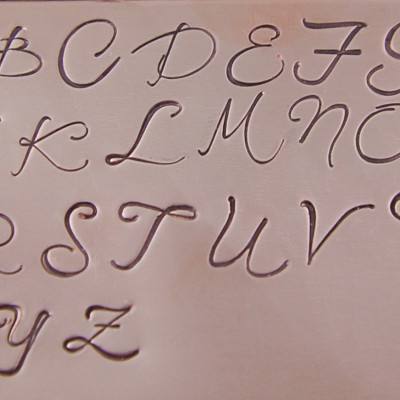 B C D E F G
K L M N O
R S T U V
Y Z